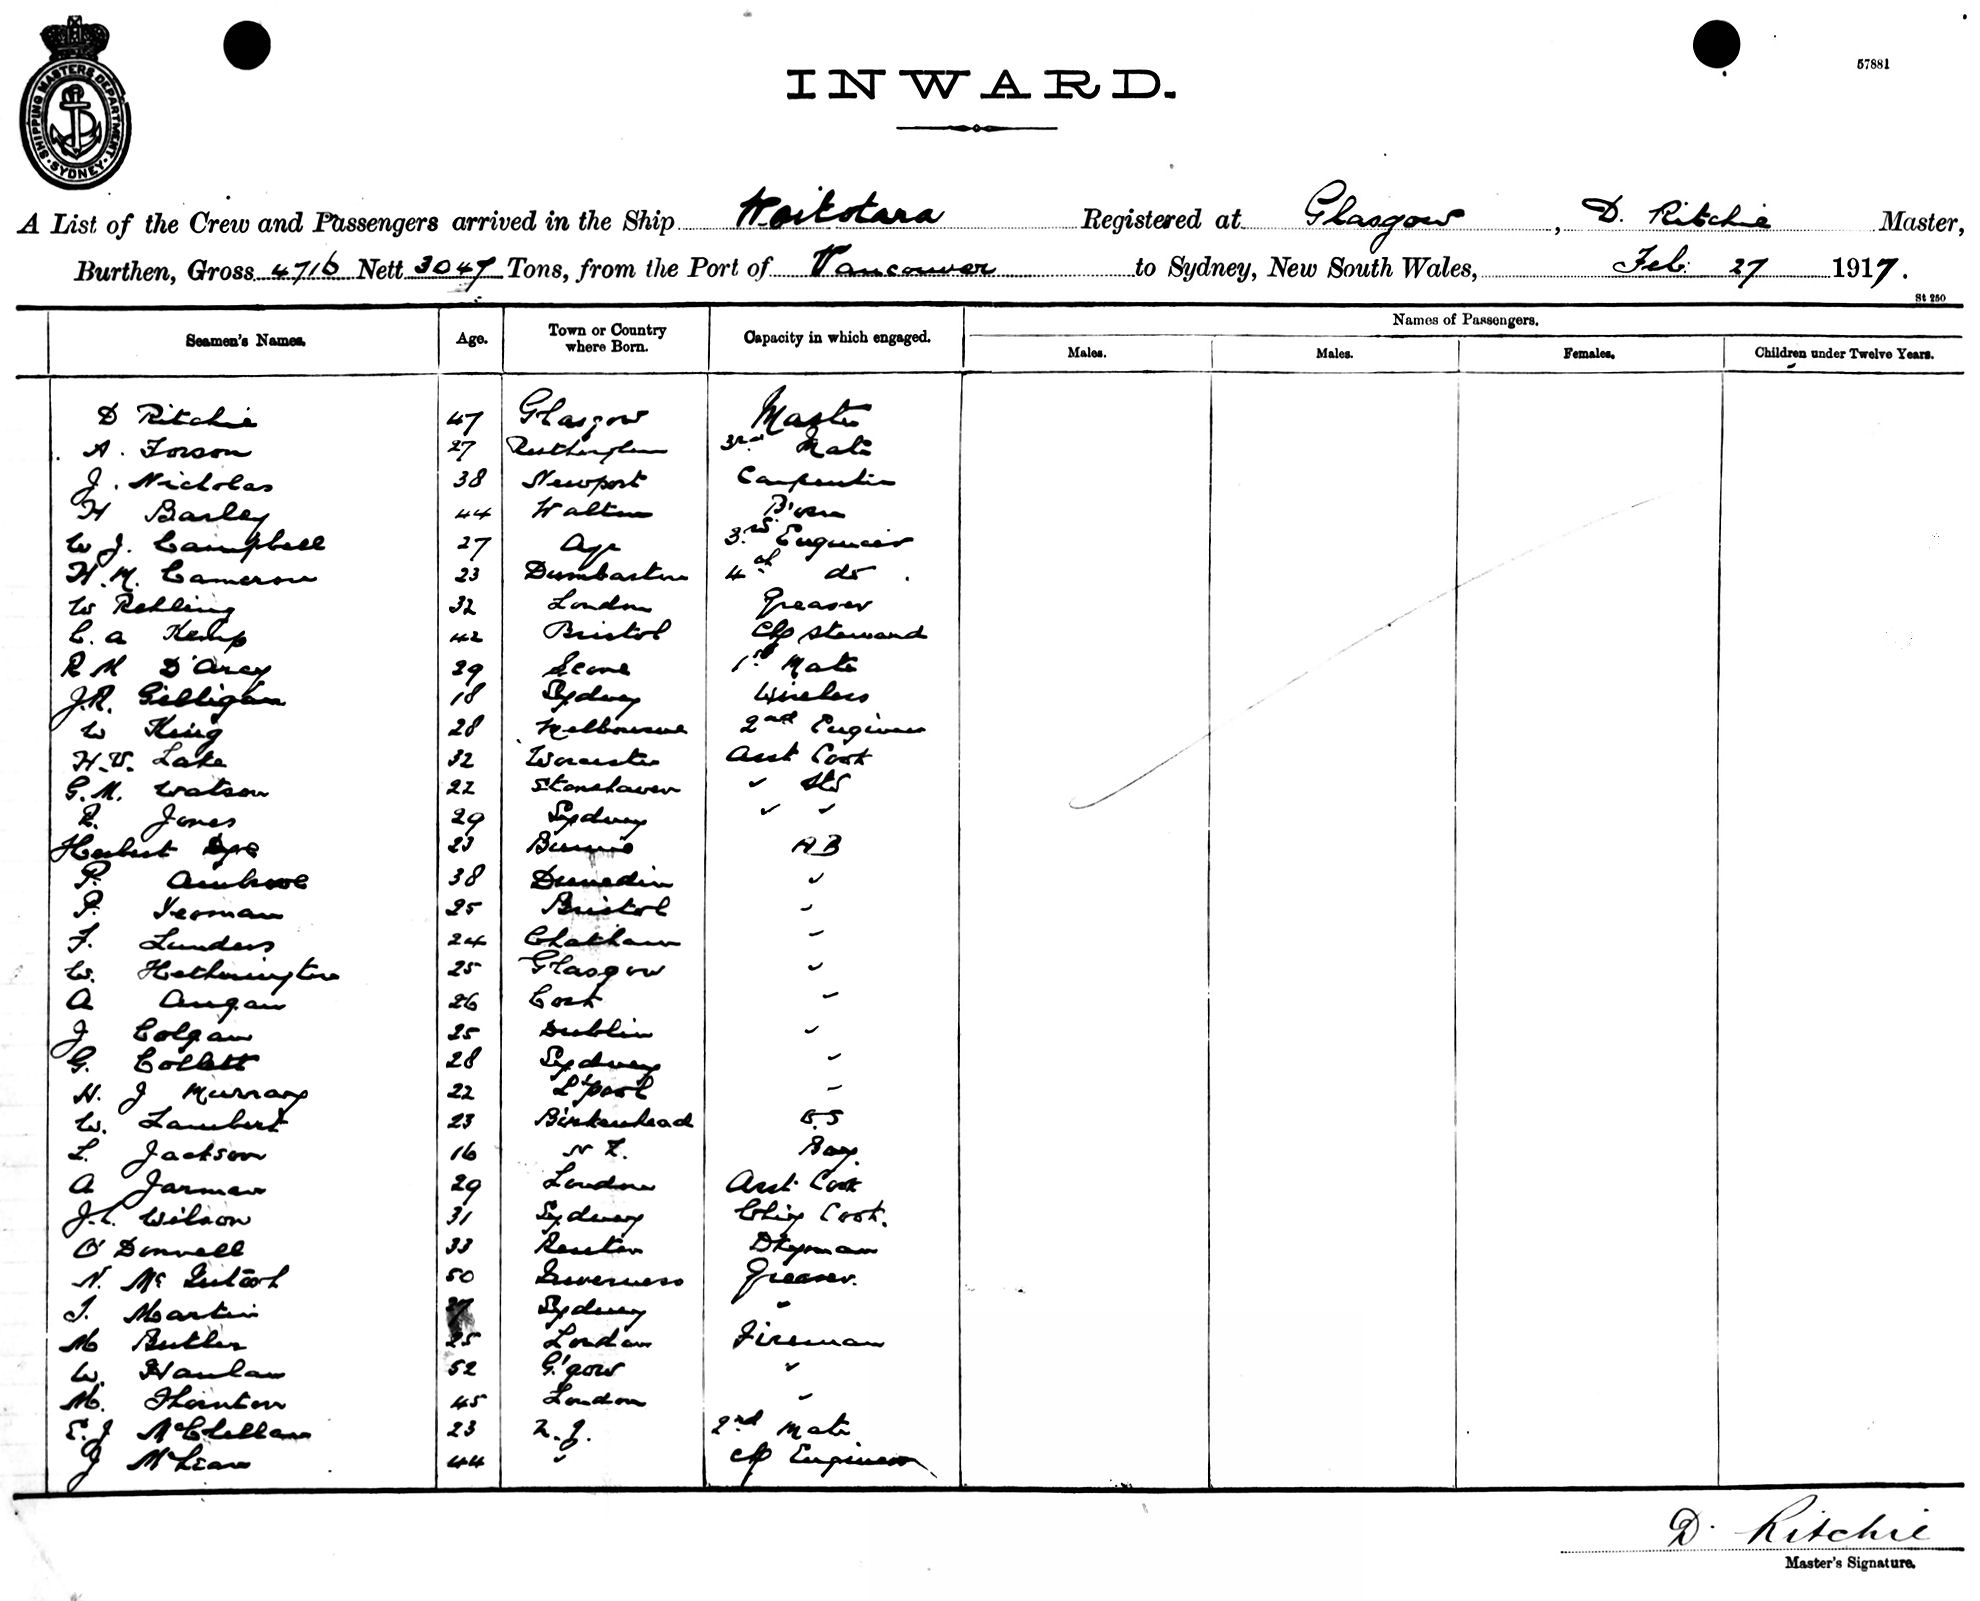 57881
SHIPPING MASTERS DEPARTMENT · SYDNEY ·
INWARD.
A List of the Crew and Passengers arrived in the Ship Waikotara Registered at Glasgow, D. Ritchie Master,
Burthen, Gross 4716 Nett 3047 Tons, from the Port of Vancouver to Sydney, New South Wales, Feb. 27 1917.
St 250
Seamen's Names. Age. Town or Country where Born. Capacity in which engaged. Names of Passengers.
Males. Males. Females. Children under Twelve Years.
D Ritchie 47 Glasgow Master
A. Forson 27 Rutherglen 3rd Mate
J. Nicholas 38 Newport Carpenter
H Barley 44 Walton B'osn
W J. Campbell 27 3rd Engineer
H. M. Cameron 23 Dumbarton 4th do.
W Rehling 32 London Greaser
C. A Kemp 42 Bristol Ch Steward
R M D'Arcy 29 Scone 1st Mate
J.R. Gilligan 18 Sydney Wireless
W King 28 Melbourne 2nd Engineer
H.V. Lake 32 Worcester Asst Cook
G.M. Watson 22 Stonehaven " Std
R. Jones 29 Sydney " "
Herbert Dye 23 Burnie AB
P. 38 Dunedin "
P. Yeoman 25 Bristol "
F. Lunders 24 Chatham "
W. Hetherington 25 Glasgow "
A 26 Cork "
J Colgan 25 Dublin "
G. Collett 28 Sydney "
H. J Murray 22 L'pool "
W. Lambert 23 Birkenhead O.S
L. Jackson 16 N Z. Boy
A Jarman 29 London Asst Cook
J.C. Wilson 31 Sydney Chief Cook.
O'Donnell 33 Dkyman
N. McIntosh 50 Inverness Greaser.
T. Martin 27 Sydney "
M Butler 25 London Fireman
W. Hanlan 52 G'gow "
M. Thornton 45 London "
E. J McClellan 23 N.Z. 2nd Mate
J McLean 44 " Ch Engineer
D. Ritchie
Master's Signature.